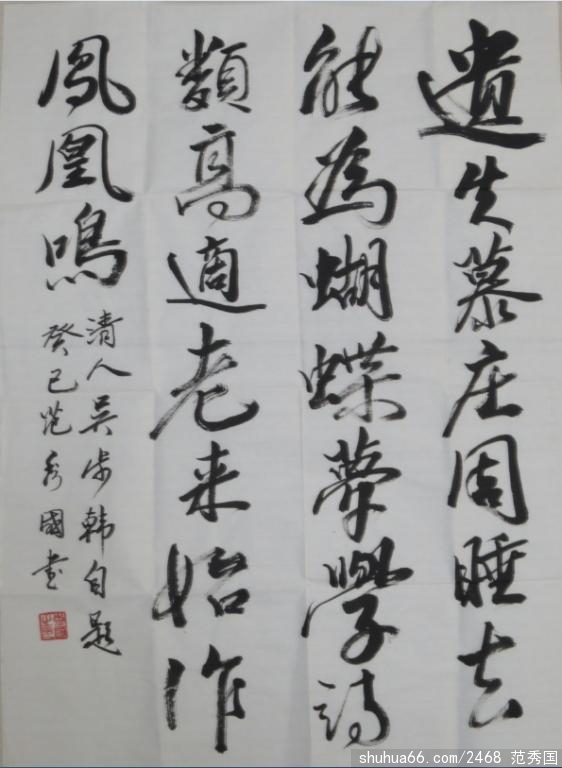 遺失慕庄周睡去
能為蝴蝶夢學詩
類高適老来始作
鳳凰鳴
清人吴步韓自題
癸巳范秀國書
shuhua66.com/2468 范秀国